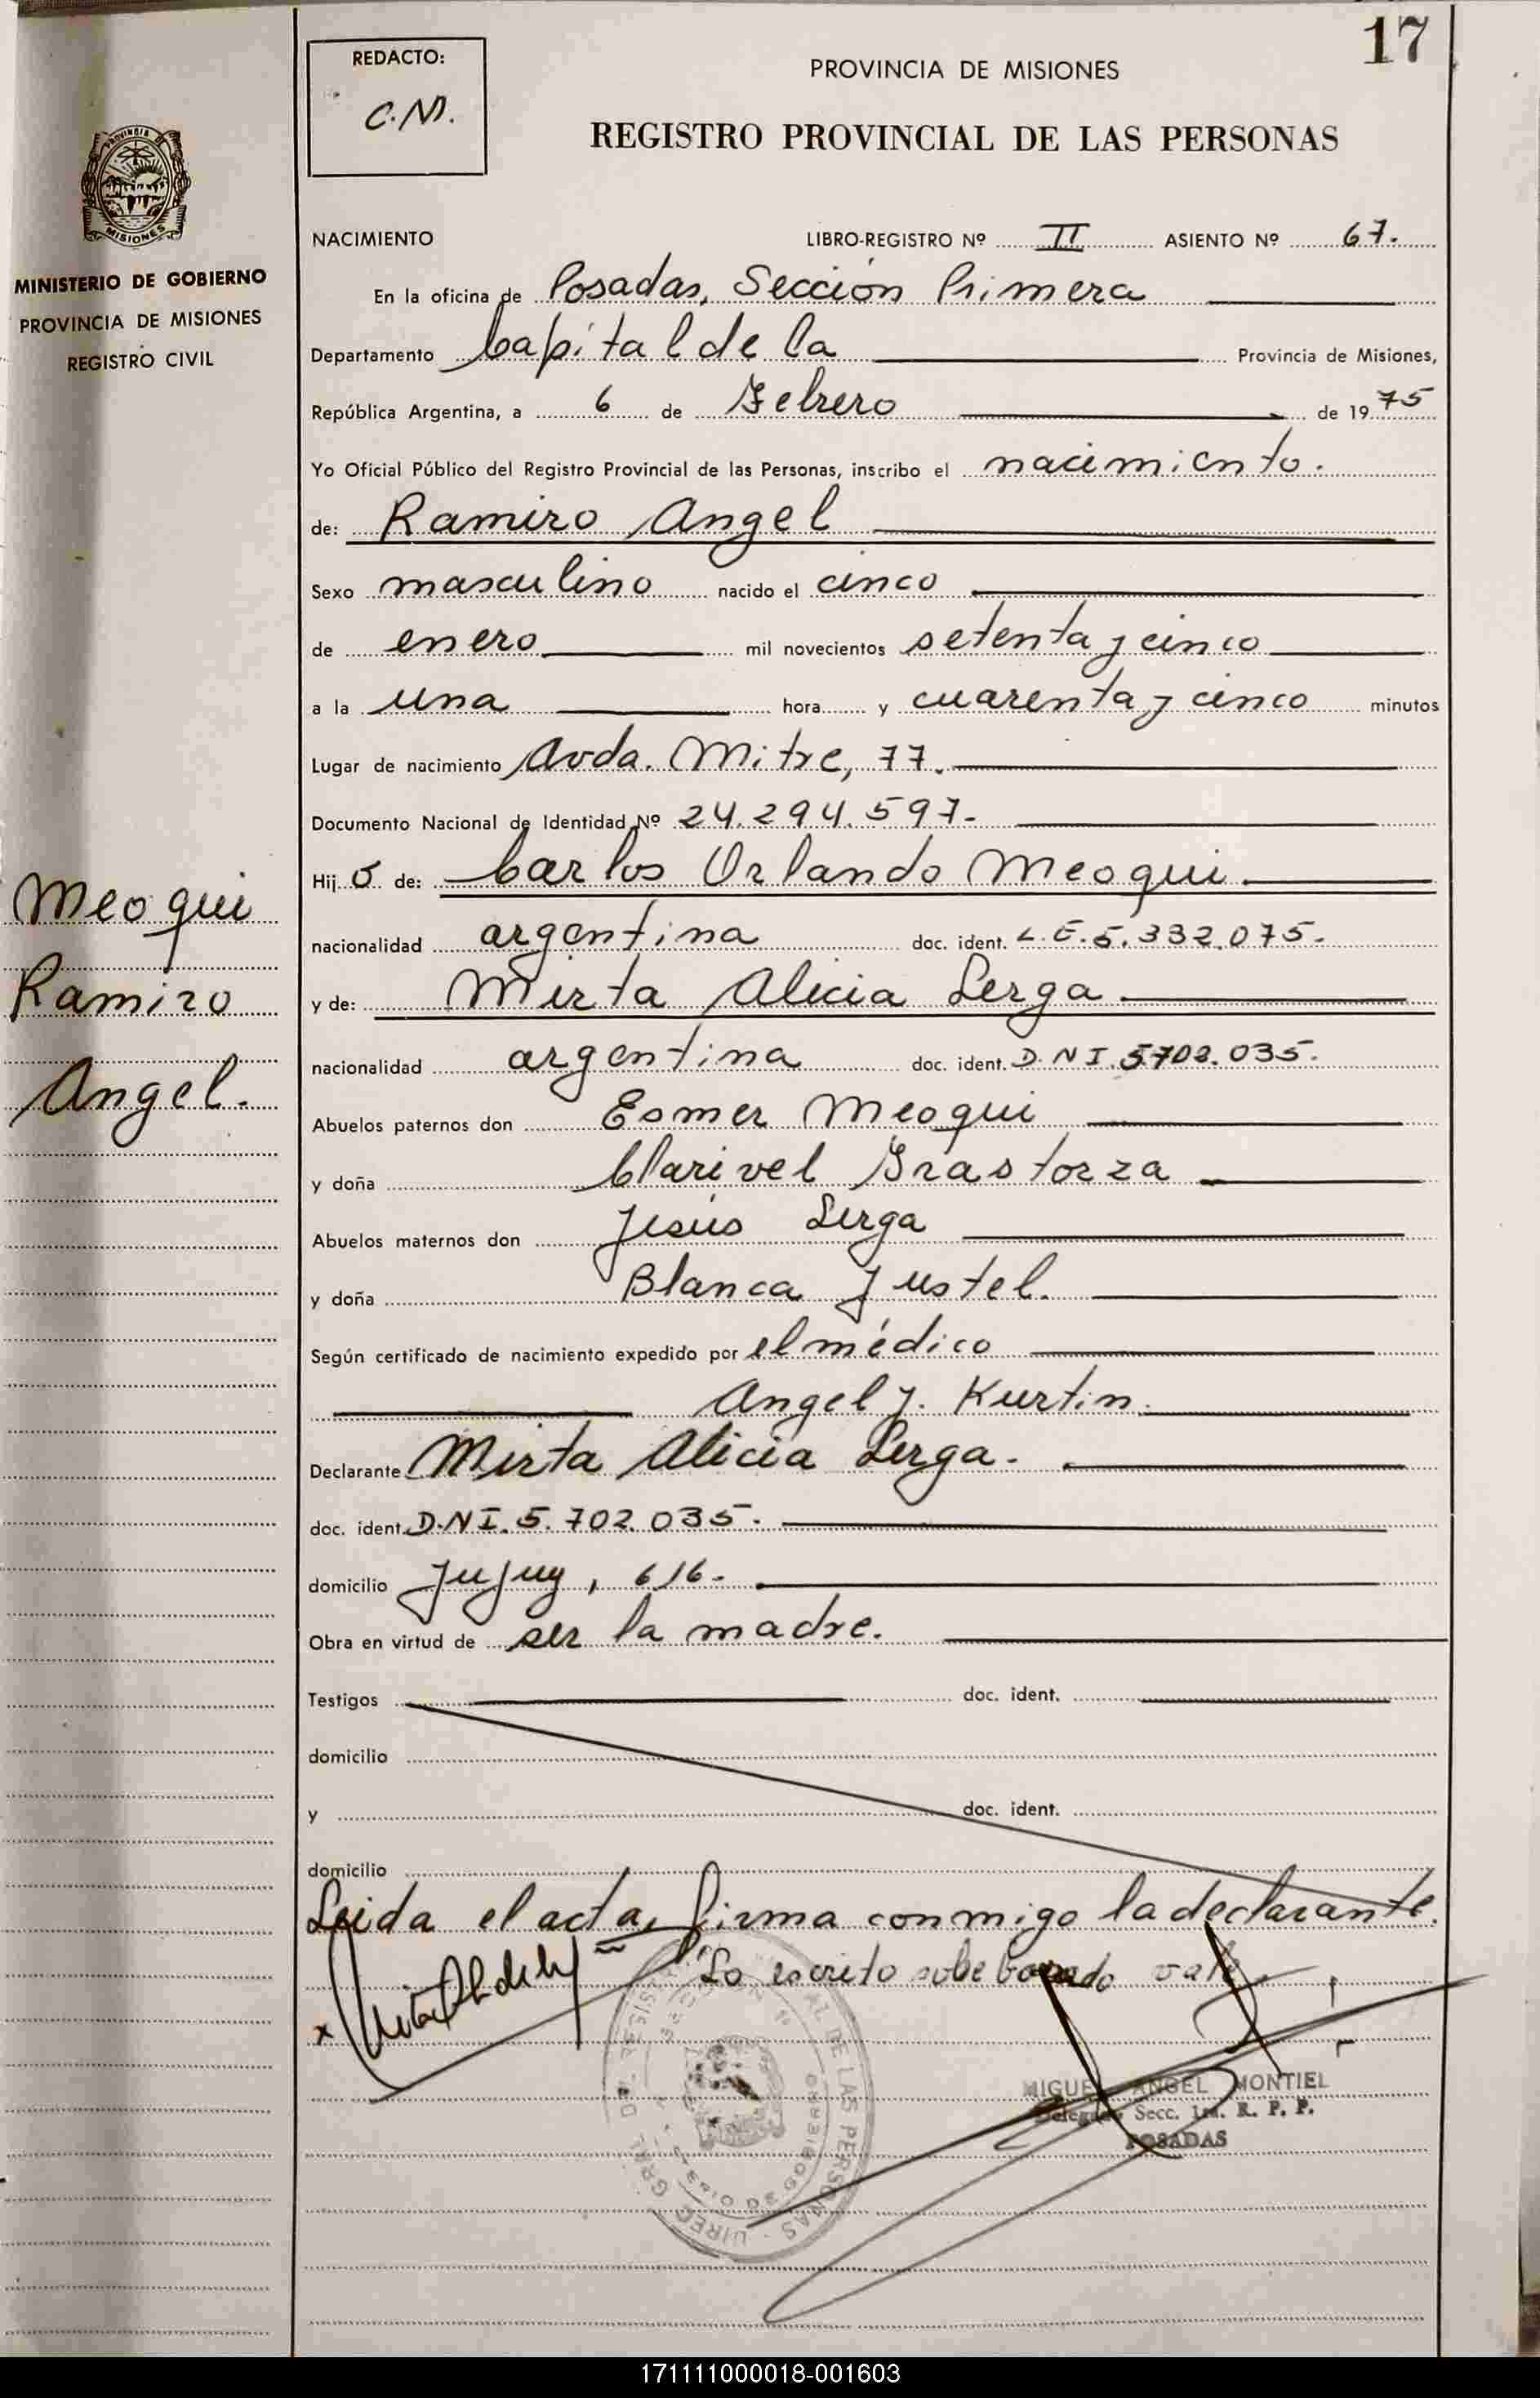 17
REDACTO:
C.M.
PROVINCIA DE MISIONES
REGISTRO PROVINCIAL DE LAS PERSONAS
PROVINCIA DE
MISIONES
MINISTERIO DE GOBIERNO
PROVINCIA DE MISIONES
REGISTRO CIVIL
NACIMIENTO LIBRO-REGISTRO Nº II ASIENTO Nº 67.
En la oficina de Posadas, Sección Primera
Departamento Capital de la Provincia de Misiones,
República Argentina, a 6 de Febrero de 1975
Yo Oficial Público del Registro Provincial de las Personas, inscribo el nacimiento.
de: Ramiro Angel
Sexo masculino nacido el cinco
de enero mil novecientos setenta y cinco
a la una hora y cuarenta y cinco minutos
Lugar de nacimiento Avda. Mitre, 77.
Documento Nacional de Identidad Nº 24.294.597-
Hijo de: Carlos Orlando Meoqui
nacionalidad argentina doc. ident. L.E.5.332.075-
y de: Mirta Alicia Lerga
nacionalidad argentina doc. ident. D.N I.5702.035.
Abuelos paternos don Esmer Meoqui
y doña Clarivel Grastorza
Abuelos maternos don Jesús Lerga
y doña Blanca Justel.
Según certificado de nacimiento expedido por el médico
Angel J. Kurtin.
Declarante Mirta Alicia Lerga.
doc. ident. D.N I. 5.702.035.
domicilio Jujuy, 616.
Obra en virtud de ser la madre.
Testigos doc. ident.
domicilio
y doc. ident.
domicilio
Leída el acta, firma conmigo la declarante.
Lo escrito sobe borrado vale
x
MIGUEL ANGEL MONTIEL
Delegado Secc. 1ra. R. P. P.
POSADAS
Meoqui
Ramiro
Angel.
171111000018-001603